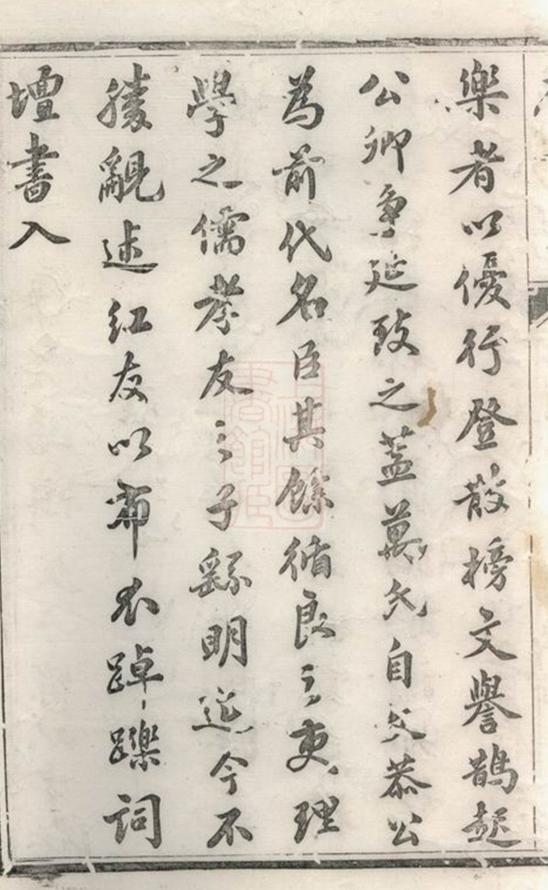 樂者以優行登散榜文譽鵲起
公卿争延致之蓋萬氏自文恭公
為前代名臣其餘循良之吏理
學之儒孝友之子繇明迄今不
勝覼述紅友以布衣踔躒詞
壇書入